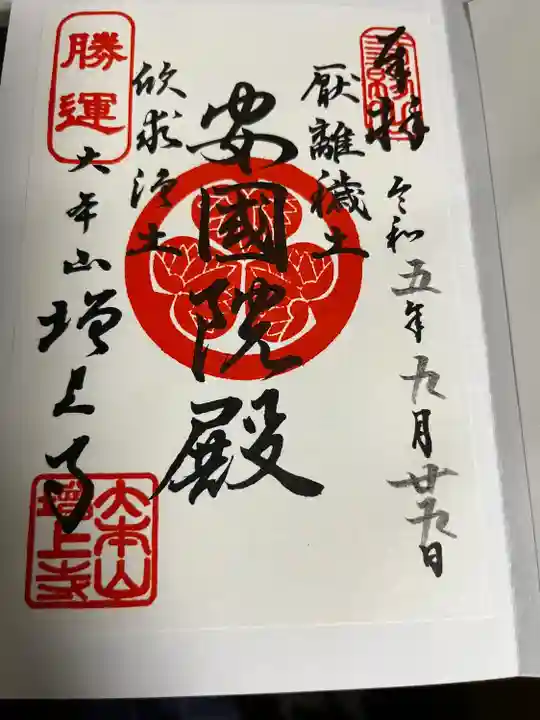 奉拝
令和五年九月廿九日
厭離穢土
安國院殿
欣求浄土
勝運
大本山増上寺
大本山
增上寺